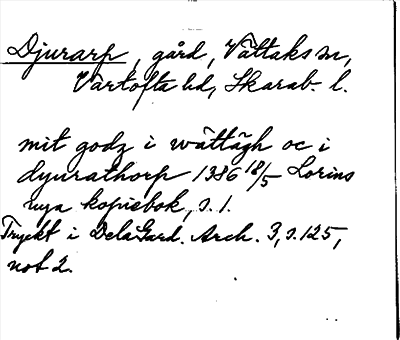 Djurarp, gård, Vättaks sn,
Vartofta hd, Skarab. l.
mit godz i wættægh oc i
dyurathorp 1386 18/5 Lorins
nya kopiebok, s. 1.
Tryckt i DelaGard. Arch. 3, s. 125,
not 2.